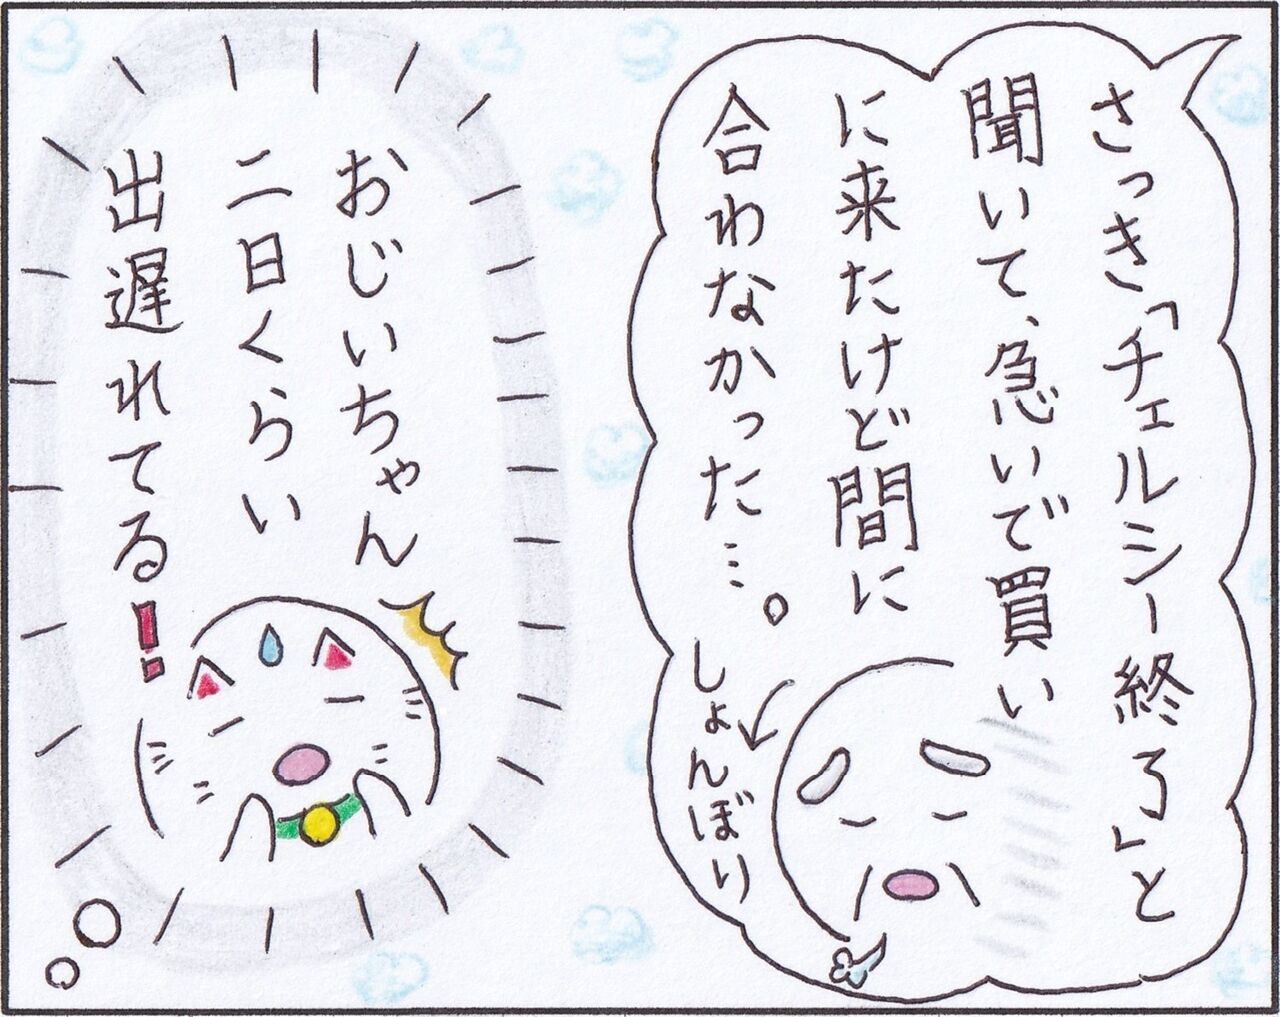 さっき「チェルシー終了」と
聞いて、急いで買い
に来たけど間に
合わなかった…。
しょんぼり
おじいちゃん
二日くらい
出遅れてる!